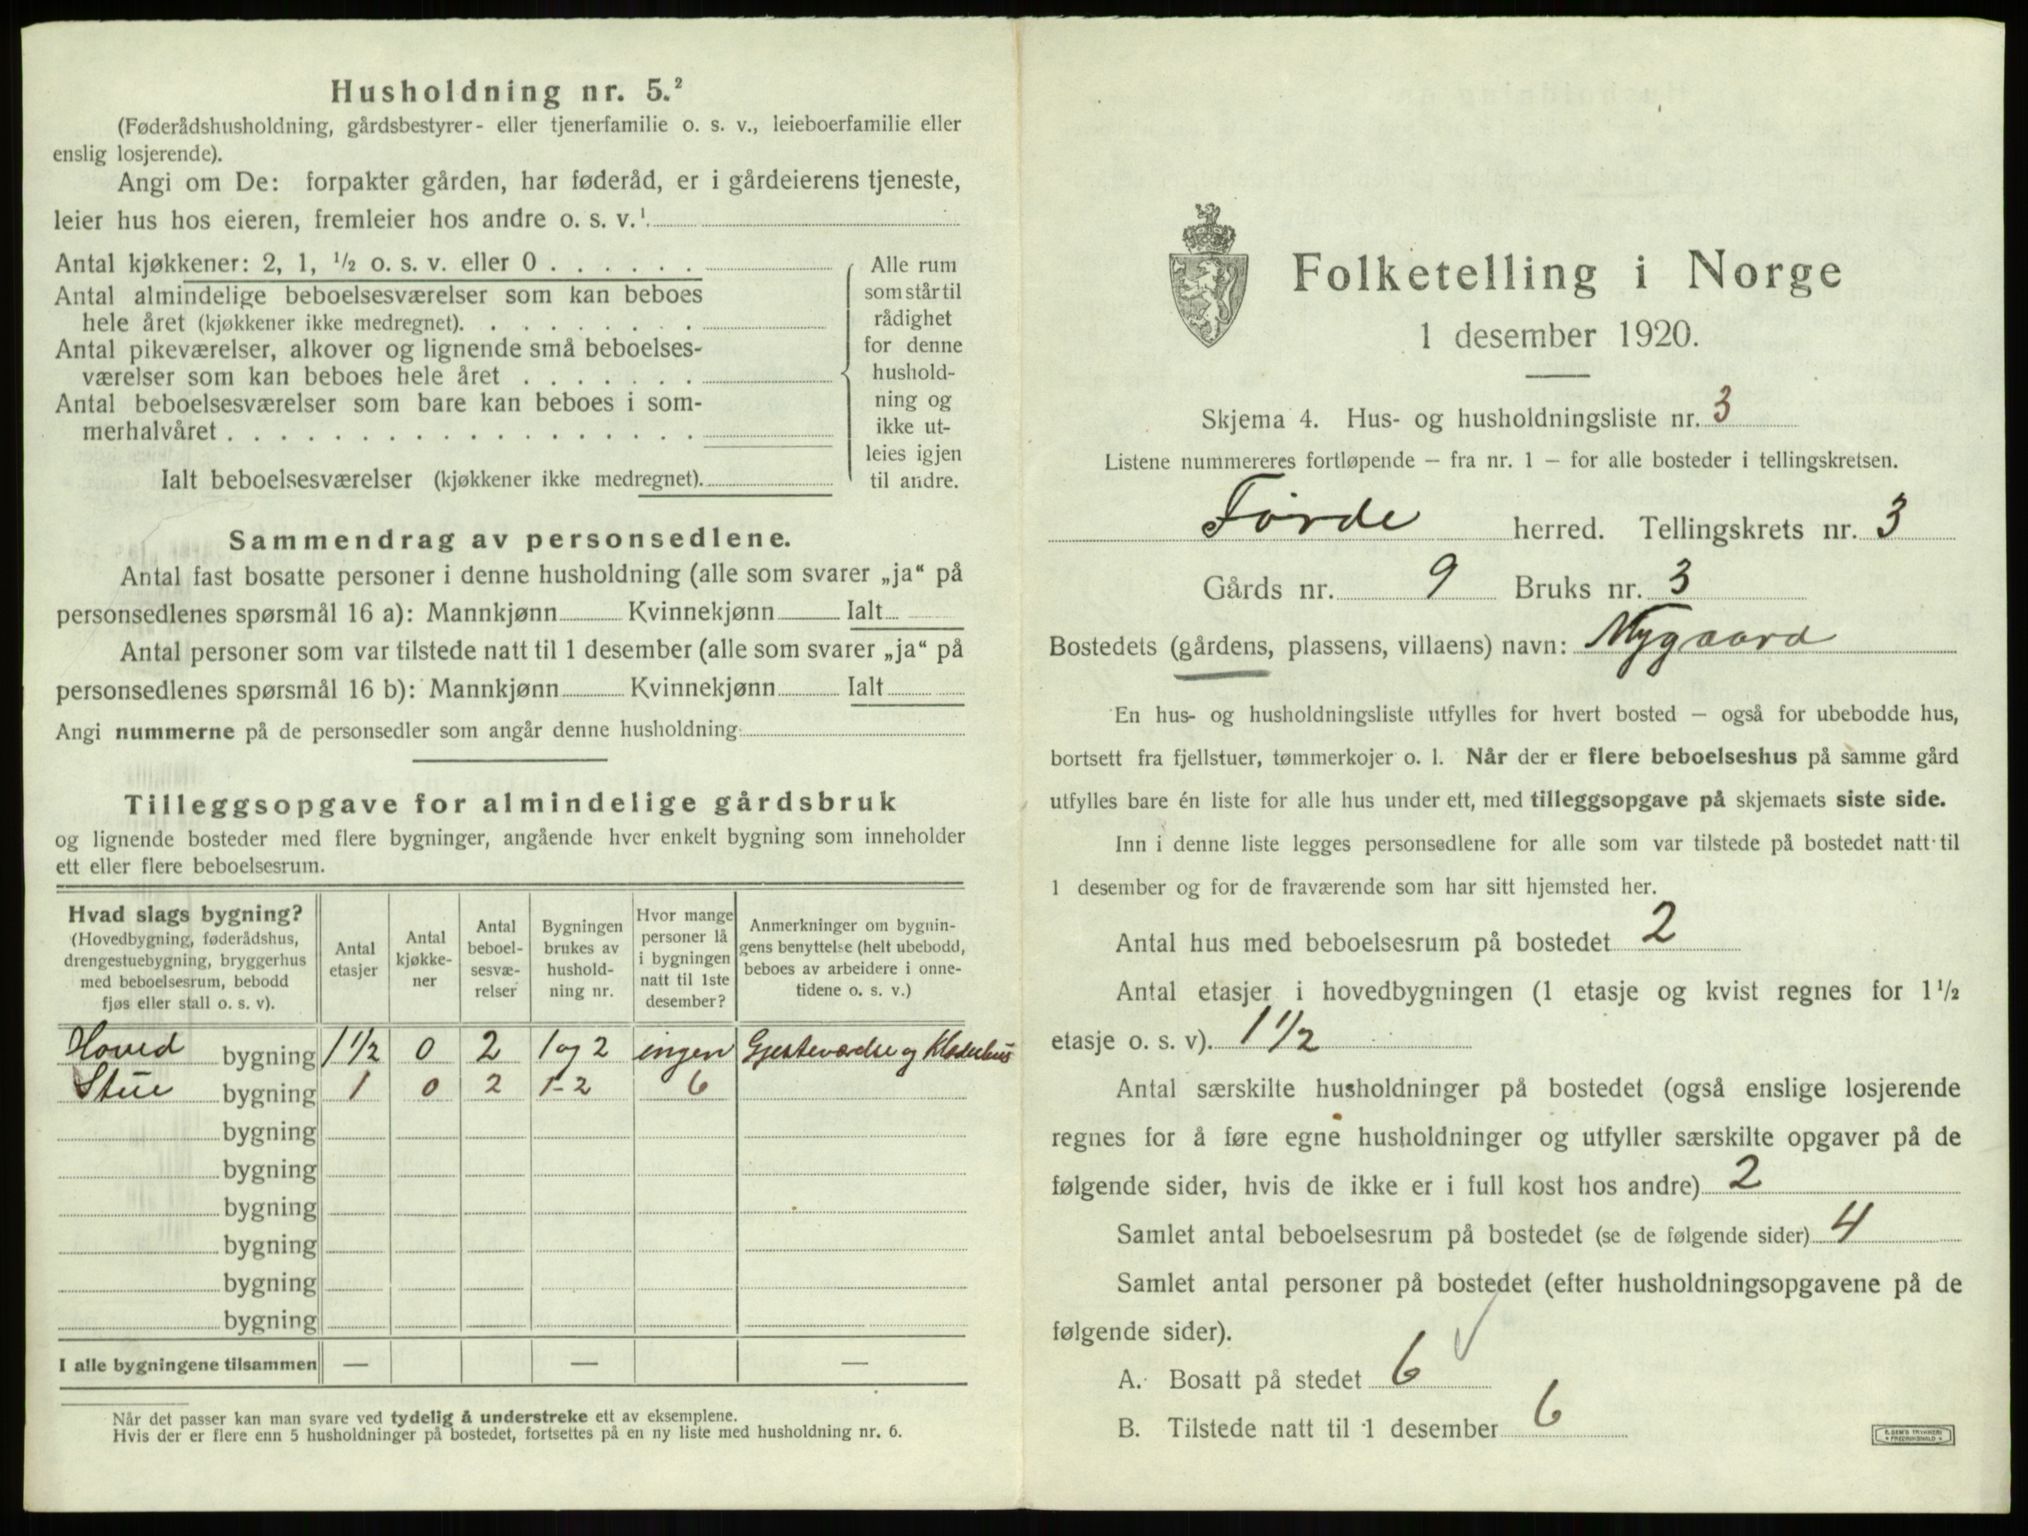 Husholdning nr. 5.²
(Føderådshusholdning, gårdsbestyrer- eller tjenerfamilie o. s. v., leieboerfamilie eller
enslig losjerende).
Angi om De: forpakter gården, har føderåd, er i gårdeierens tjeneste,
leier hus hos eieren, fremleier hos andre o. s. v.¹
Antal kjøkkener: 2, 1, ½ o. s. v. eller 0 . . . . . .
Antal almindelige beboelsesværelser som kan beboes
hele året (kjøkkener ikke medregnet). . . . . . . . .
Antal pikeværelser, alkover og lignende små beboelses-
værelser som kan beboes hele året . . . . . . .
Antal beboelsesværelser som bare kan beboes i som-
merhalvåret . . . . . . . . . . . . . . . . . .
Ialt beboelsesværelser (kjøkkener ikke medregnet).
Alle rum
som står til
rådighet
for denne
hushold-
ning og
ikke ut-
leies igjen
til andre.
Sammendrag av personsedlene.
Antal fast bosatte personer i denne husholdning (alle som svarer „ja“ på
personsedlenes spørsmål 16 a): Mannkjønn Kvinnekjønn Ialt
Antal personer som var tilstede natt til 1 desember (alle som svarer „ja“ på
personsedlenes spørsmål 16 b): Mannkjønn Kvinnekjønn Ialt
Angi nummerne på de personsedler som angår denne husholdning:
Tilleggsopgave for almindelige gårdsbruk
og lignende bosteder med flere bygninger, angående hver enkelt bygning som inneholder
ett eller flere beboelsesrum.
Hvad slags bygning?
(Hovedbygning, føderådshus,
drengestuebygning, bryggerhus
med beboelsesrum, bebodd
fjøs eller stall o. s. v).
Antal
etasjer
Antal
kjøkke-
ner
Antal
beboel-
sesvæ-
relser
Bygningen
brukes av
hushold-
ning nr.
Hvor mange
personer lå
i bygningen
natt til 1ste
desember?
Anmerkninger om bygnin-
gens benyttelse (helt ubebodd,
beboes av arbeidere i onne-
tidene o. s. v.)
Hoved bygning 1 1/2 0 2 1 og 2 ingen Gjesteværelse og Klædehus
Stue bygning 1 0 2 1-2 6
bygning
bygning
bygning
bygning
bygning
bygning
I alle bygningene tilsammen — — —
Når det passer kan man svare ved tydelig å understreke ett av eksemplene.
Hvis der er flere enn 5 husholdninger på bostedet, fortsettes på en ny liste med husholdning nr. 6.
Folketelling i Norge
1 desember 1920.
Skjema 4. Hus- og husholdningsliste nr. 3
Listene nummereres fortløpende — fra nr. 1 — for alle bosteder i tellingskretsen.
Førde herred. Tellingskrets nr. 3
Gårds nr. 9 Bruks nr. 3
Bostedets (gårdens, plassens, villaens) navn: Nygaard
En hus- og husholdningsliste utfylles for hvert bosted — også for ubebodde hus,
bortsett fra fjellstuer, tømmerkojer o. l. Når der er flere beboelseshus på samme gård
utfylles bare én liste for alle hus under ett, med tilleggsopgave på skjemaets siste side.
Inn i denne liste legges personsedlene for alle som var tilstede på bostedet natt til
1 desember og for de fraværende som har sitt hjemsted her.
Antal hus med beboelsesrum på bostedet 2
Antal etasjer i hovedbygningen (1 etasje og kvist regnes for 1½
etasje o. s. v). 1 1/2
Antal særskilte husholdninger på bostedet (også enslige losjerende
regnes for å føre egne husholdninger og utfyller særskilte opgaver på de
følgende sider, hvis de ikke er i full kost hos andre) 2
Samlet antal beboelsesrum på bostedet (se de følgende sider) 4
Samlet antal personer på bostedet (efter husholdningsopgavene på de
følgende sider).
A. Bosatt på stedet 6
B. Tilstede natt til 1 desember 6
E. SEM'S TRYKKERI
FREDRIKSHALD